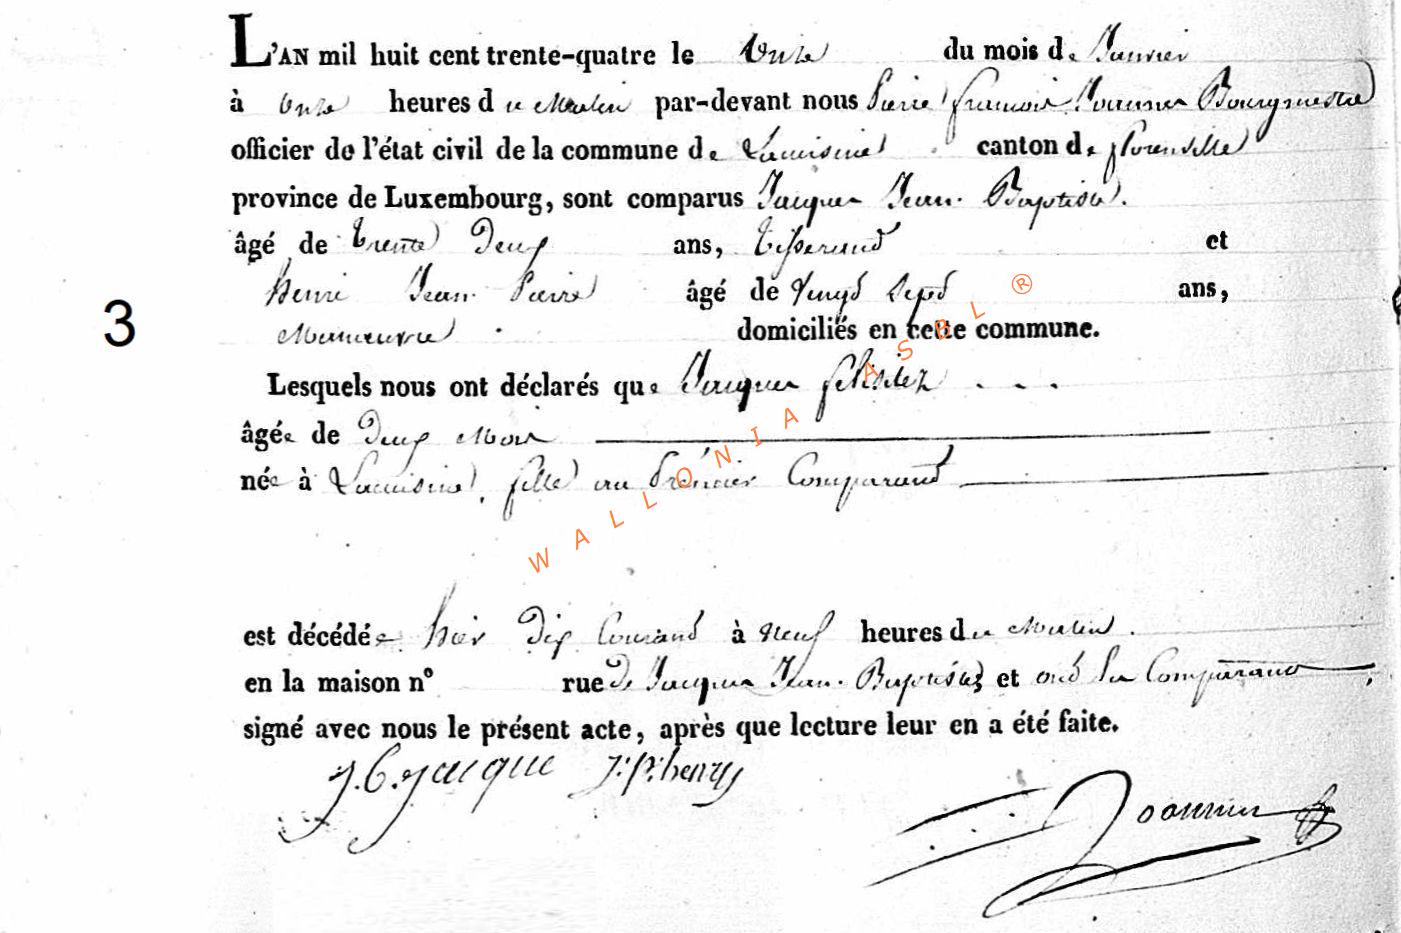 L'AN mil huit cent trente-quatre le Onze du mois de Janvier
à Onze heures du Matin par-devant nous Pierre françois Joannes Bourgmestre
officier de l'état civil de la commune de Lacuisine canton de florenville
province de Luxembourg, sont comparus Jacques Jean Baptiste.
âgé de trente Deux ans, tisserand et
henri Jean Pierre âgé de Vingt Sept ans,
3
Maneuvre domiciliés en cette commune.
Lesquels nous ont déclarés que Jacques
âgée de Deux Mois
née à Lacuisine, fille au Premier Comparand
est décédée hier Dix Courand à Neuf heures du Matin.
en la maison n° rue de Jacques Jean Baptiste et ont les Comparand,
signé avec nous le présent acte, après que lecture leur en a été faite.
J. B. Jacque J. P. henry
Joannes
WALLONIA ASBL ®